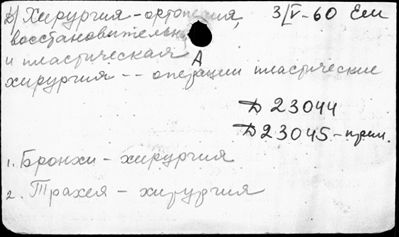 б) Хирургия - ортопедия, 3/V-60 Ели
восстановительная
и пластическая А
хирургия -- операции пластические
Д 23044
Д 23045-прил.
1. Бронхи - хирургия
2. Трахея - хирургия